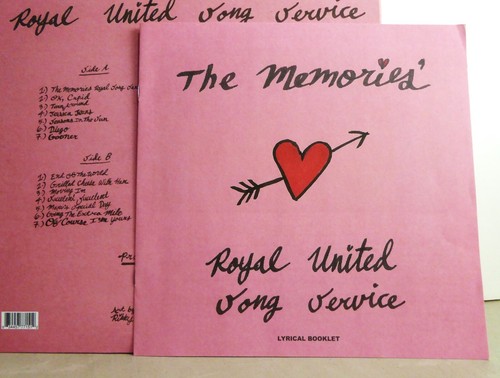 Royal United Song Service
Side A
1.) The Memories Royal Song
2.) Ok, Cupid
3.)
4.)
5.) Seasons In The Sun
6.) Diego
7.) Goofier
Side B
1.) End Of The World
2.) Grilled Cheese With Ham
3.) Moving In
4.)
5.) Special Day
6.) Going The Extra Mile
7.) Of Course I'm Yours
Art by
The Memories'
Royal United
Song Service
LYRICAL BOOKLET